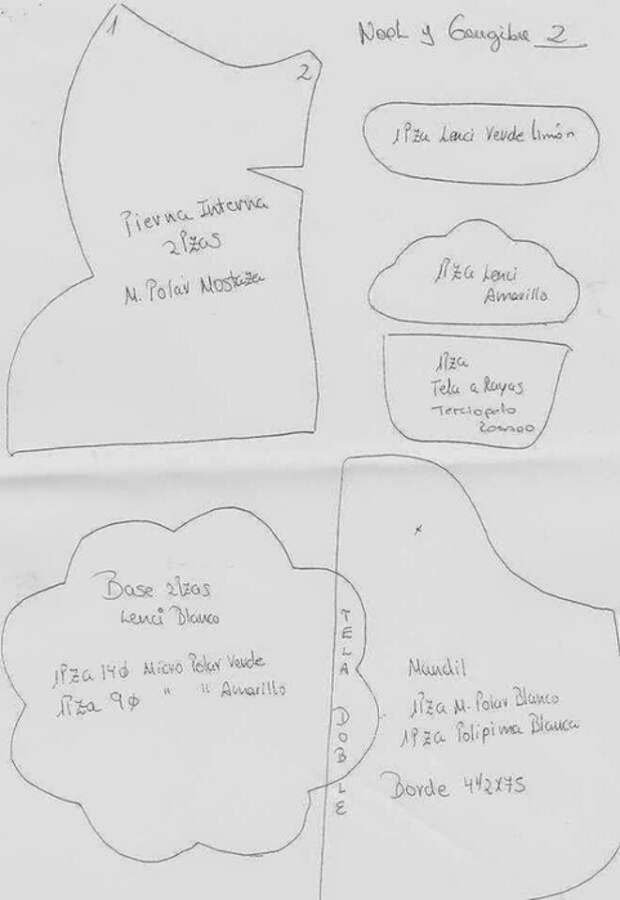 Noel y Gengibre 2
1
2
Pierna Interna
2Pzas
M. Polar Mostaza
1Pza Lenci Verde limón
1Pza Lenci
Amarillo
1Pza
Tela a Rayas
Terciopelo
Base 2Pzas
Lenci Blanco
1Pza 14ø Micro Polar Verde
1Pza 9ø " " Amarillo
TELA DOBLE
Mandil
1Pza M. Polar Blanco
1Pza Polipima Blanca
Borde 4 1/2 x 75